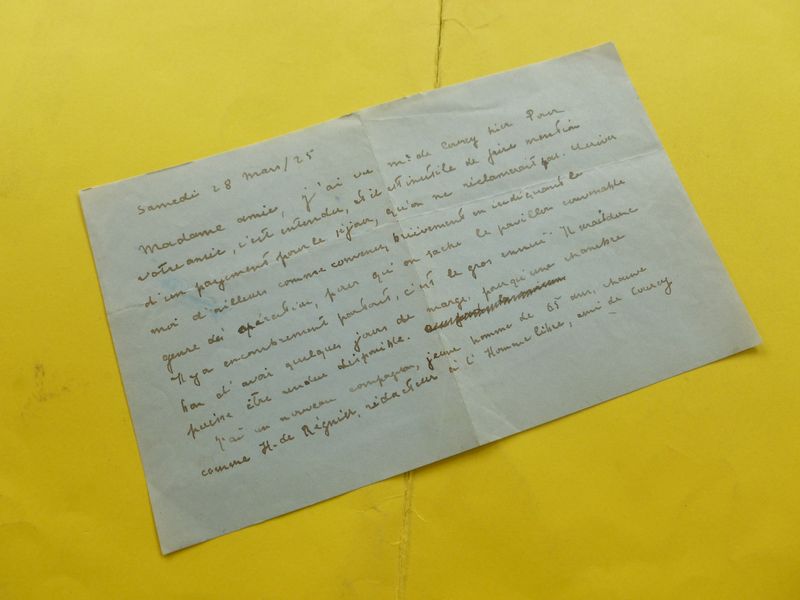 Samedi 28 Mars/25
Madame amie, j'ai vu Mr de Courcy hier Pour
votre amie, c'est entendu, et il est inutile de faire mention
d'un payement pour le 1er jour, qu'on ne réclamerait pas. Écrivez
moi d'ailleurs comme convenu, brièvement en indiquant le
genre des opération, pour qu'on sache le pavillon convenable
Il y a encombrement partout, c'est le gros ennui. Il serait donc
bon d'avoir quelques jours de marge, pour qu'une chambre
puisse être rendue disponible.
J'ai un nouveau compagnon, jeune homme de 65 ans, chauve
comme H. de Régnier, rédacteur à l'Homme libre, ami de Courcy